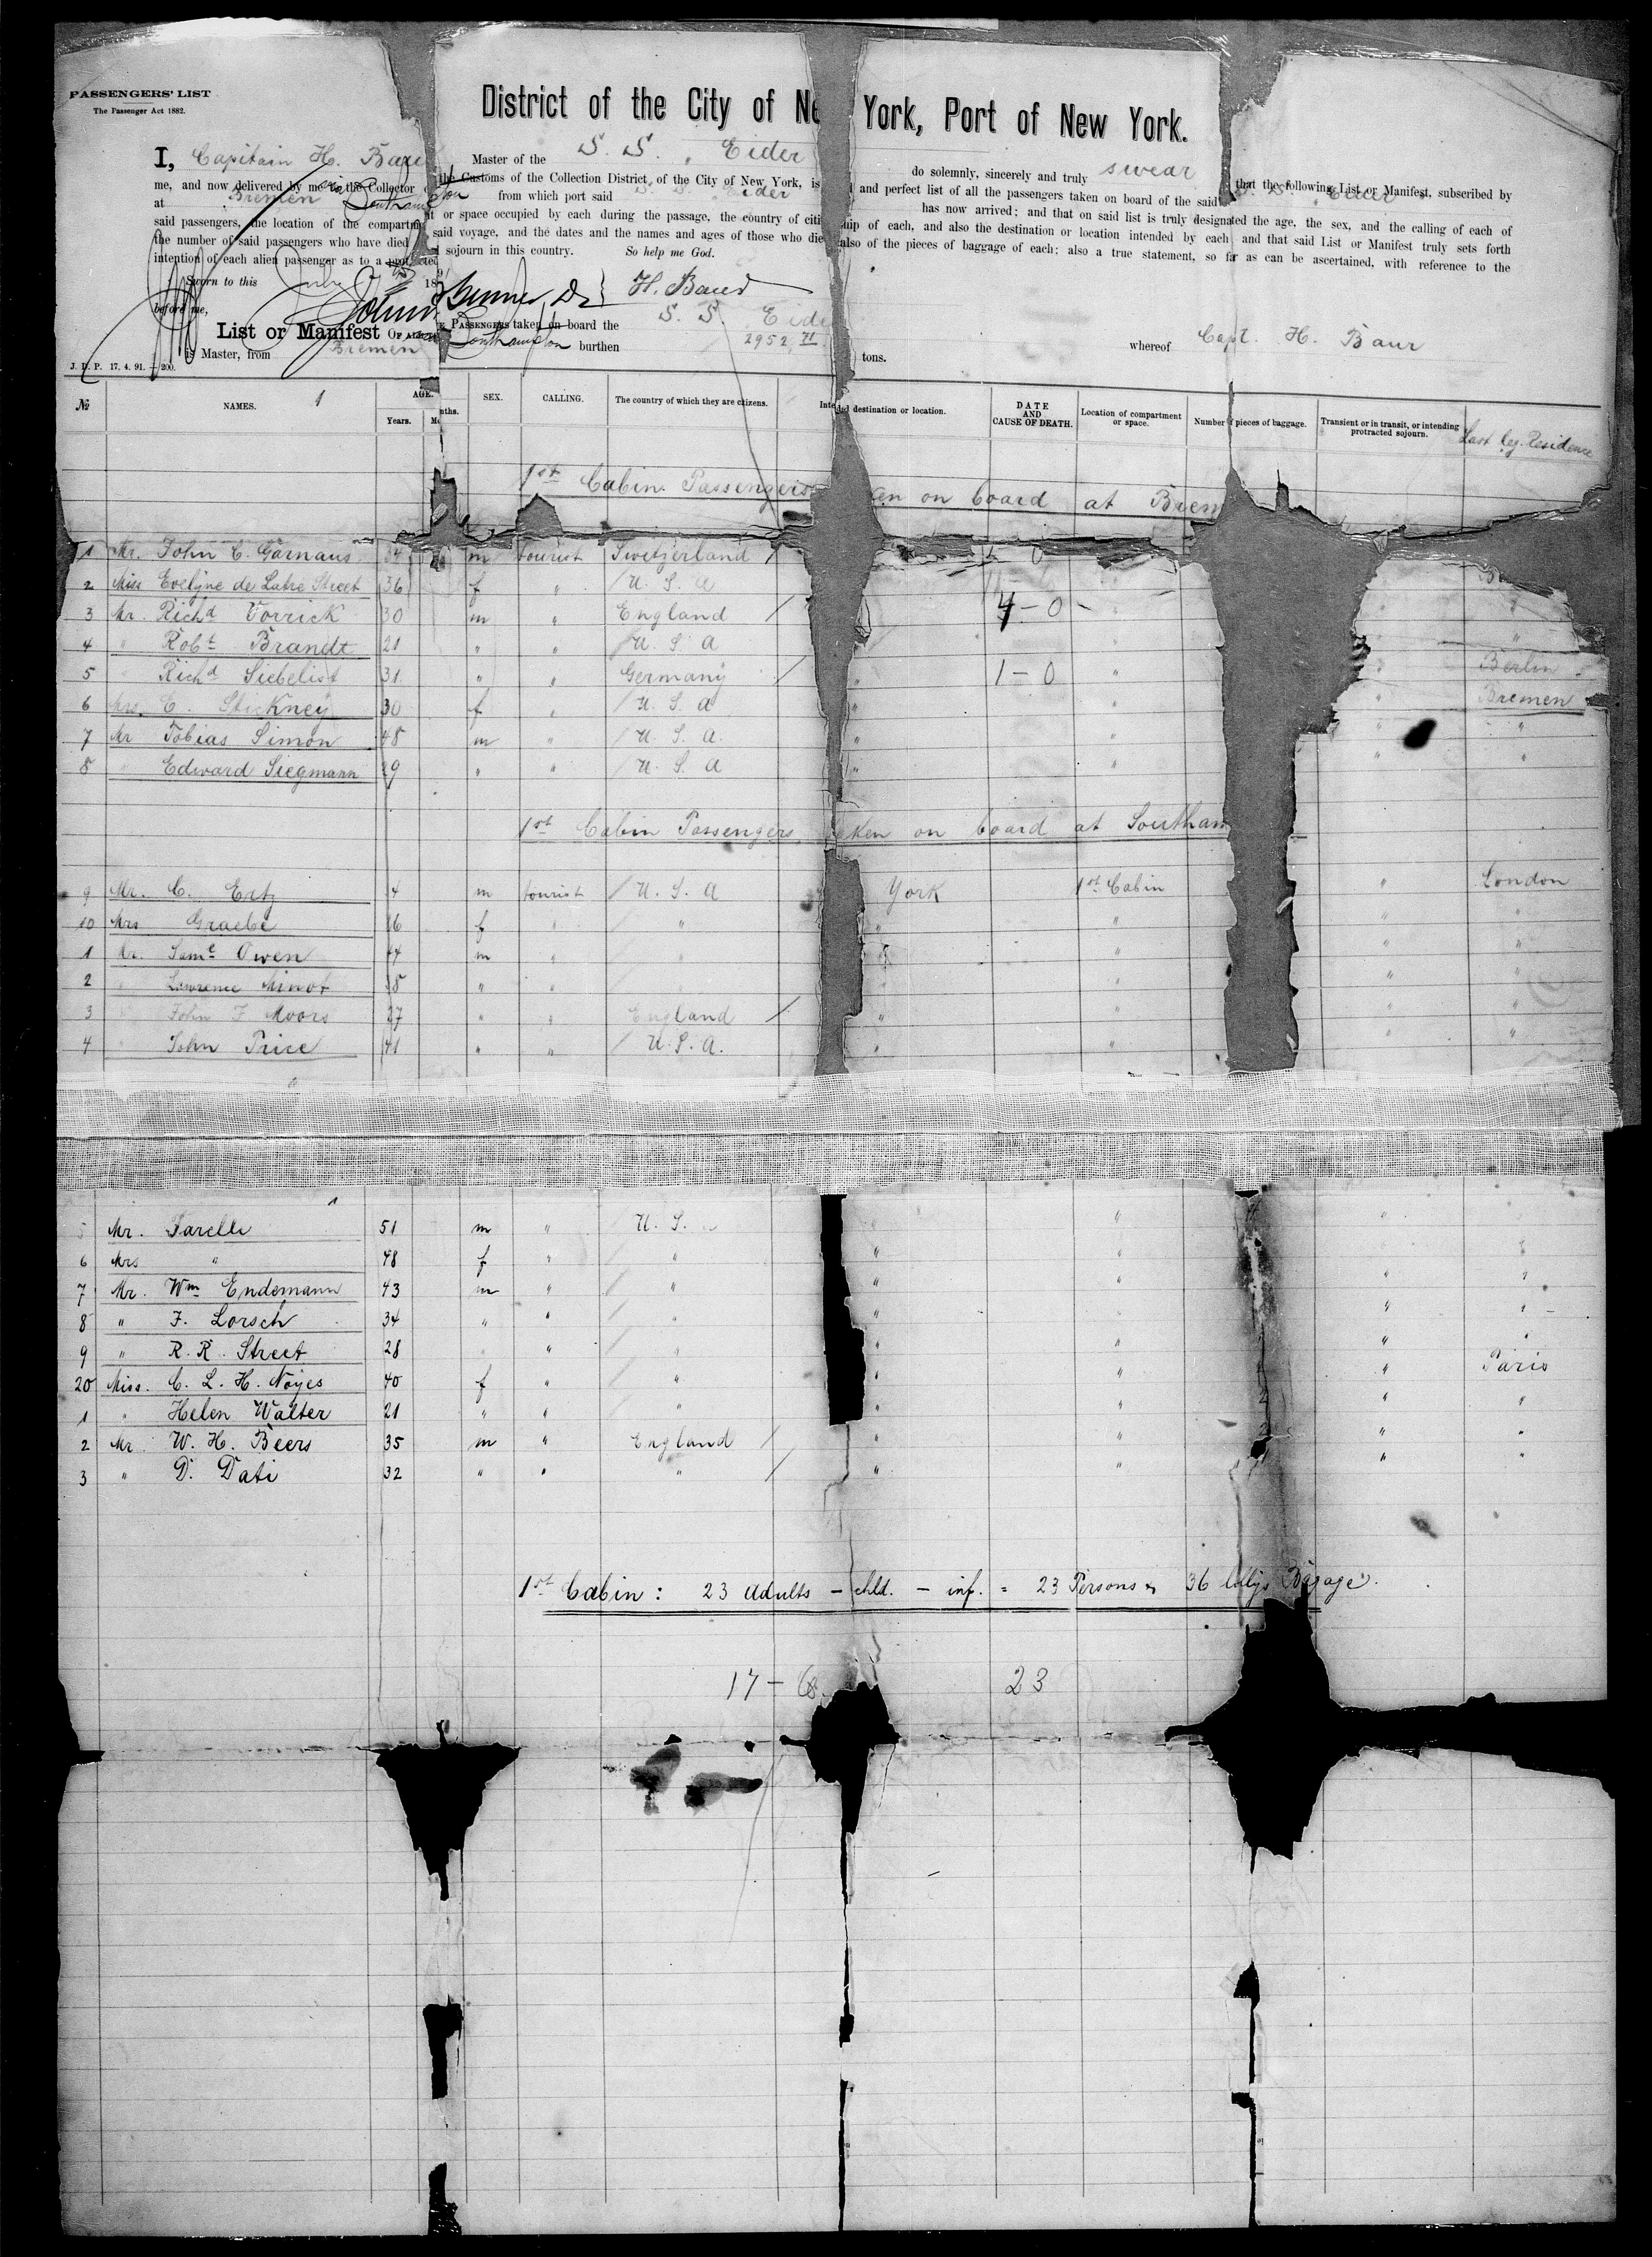 PASSENGERS' LIST
The Passenger Act 1882.
District of the City of Ne York, Port of New York.
I, Capitain H. Bau Master of the S. S. Eider do solemnly, sincerely and truly swear that the following List or Manifest, subscribed by
me, and now delivered by me to the Collector the Customs of the Collection District of the City of New York, is and perfect list of all the passengers taken on board of the said S. S. Eider
at Bremen via Southampton from which port said S. S. Eider has now arrived; and that on said list is truly designated the age, the sex, and the calling of each of
said passengers, the location of the compartm or space occupied by each during the passage, the country of citi ship of each, and also the destination or location intended by each and that said List or Manifest truly sets forth
the number of said passengers who have died said voyage, and the dates and the names and ages of those who die also of the pieces of baggage of each; also a true statement, so far as can be ascertained, with reference to the
intention of each alien passenger as to a protected sojourn in this country. So help me God.
Sworn to this July 18
before me, H. Baur
List or Manifest OF ALL THE PASSENGERS taken on board the S. S. Eide
is Master, from Bremen Southampton burthen 2952, 71 tons. whereof Capt. H. Baur
J. D. P. 17. 4. 91. — 200.
№ NAMES. 1 AGE. Years. Mo nths. SEX. CALLING. The country of which they are citizens. Intended destination or location. DATE AND CAUSE OF DEATH. Location of compartment or space. Number of pieces of baggage. Transient or in transit, or intending protracted sojourn. Last leg. Residence
1st Cabin Passengers en on board at Brem
1 Mr. John C. Garnaus 34 m tourist Switzerland / 1 0
2 Miss Evelyne de Latre Street 36 f " / U. S. A
3 Mr. Richd Vorrick 30 m " England / 4 - 0 "
4 " Robt Brandt 21 " " / U. S. A " "
5 " Richd Siebelist 31 " " Germany / " 1 - 0 " " Berlin
6 Mrs. E. Stickney 30 f " / U. S. A " " " Bremen
7 Mr Tobias Simon 48 m " / U. S. A. " " " "
8 " Edward Siegmann 29 " " / U. S. A " " " "
1st Cabin Passengers taken on board at Southam
9 Mr. C. Ertz 4 m tourist / U. S. A York 1st Cabin " London
10 Mrs Graebe 26 f " / " " " " "
1 Mr. Saml Owen 44 m " / " " " " "
2 " Lawrence Minot 38 " " " " " "
3 " John F Moors 27 " " England / " " " "
4 " John Price 41 " " / U. S. A. " " " "
1
5 Mr. Farelli 51 m " / U. S. " " "
6 Mrs " 48 f " / " " "
7 Mr. Wm Endemann 43 m " / " " " " "
8 " F. Lorsch 34 " " / " " " "
9 " R. R. Street 28 " " / " " " " "
20 Miss. C. L. H. Noyes 40 f " / " " " " Paris
1 " Helen Walter 21 " " / " " " 2 " "
2 Mr W. H. Beers 35 m " England / " " 2 " "
3 " D. Dati 32 " " " / " " 1 " "
1st Cabin: 23 adults - chld. - inf. = 23 Persons & 36 collys Bagage.
17 - 6 23